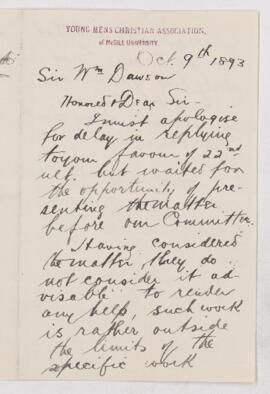 YOUNG MENS CHRISTIAN ASSOCIATION,
of McGILL UNIVERSITY.
Oct. 9th 1893
Sir Wm Dawson
Honored & Dear Sir-
I must apologise
for delay in replying
to your favour of 22nd
ult. but waited for
the opportunity of pre-
senting the matter
before our Committee.
Having considered
the matter, they do
not consider it ad-
visable to render
any help, such work
is rather outside
the limits of the
specific work